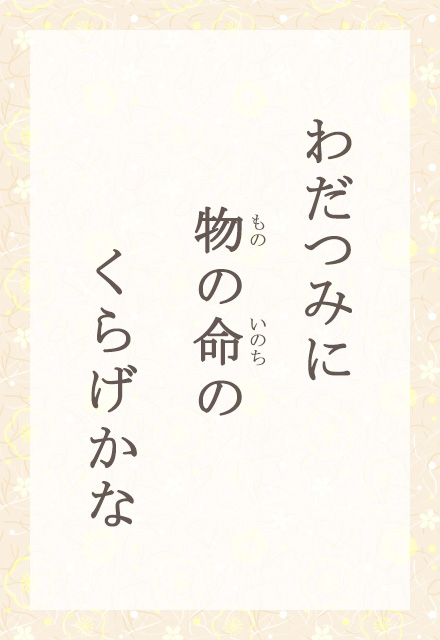 わだつみに
物の命の
くらげかな
もの
いのち